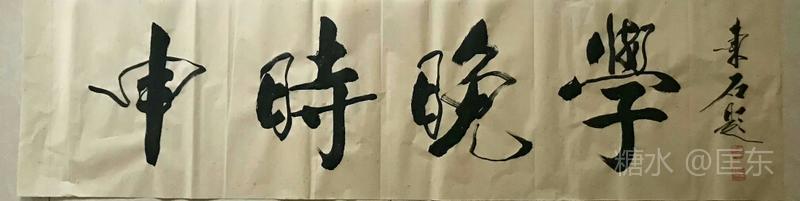 申時晚學
東石題
糖水 @匡东